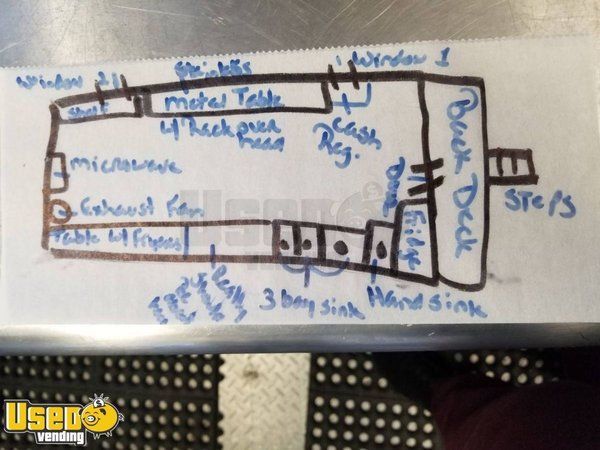 Window 2
Drinks
Window 1
Shelf
Metal Table
w/ Rack over
head
Cash
Reg.
Microwave
Exhaust Fan
Table w/ Fryers
3 bay sink
Hand sink
Fridge
Door
Back Deck
Steps
USED
VENDING
USED
vending